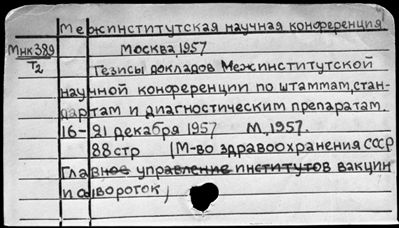 Межинститутская научная конференция
Мнк389
Москва, 1957
Т2
Тезисы докладов Межинститутской
научной конференции по штаммам, стан-
дартам и диагностическим препаратам.
16-21 декабря 1957 М., 1957.
88 стр (М-во здравоохранения СССР
Главное управление институтов вакцин
и сывороток)